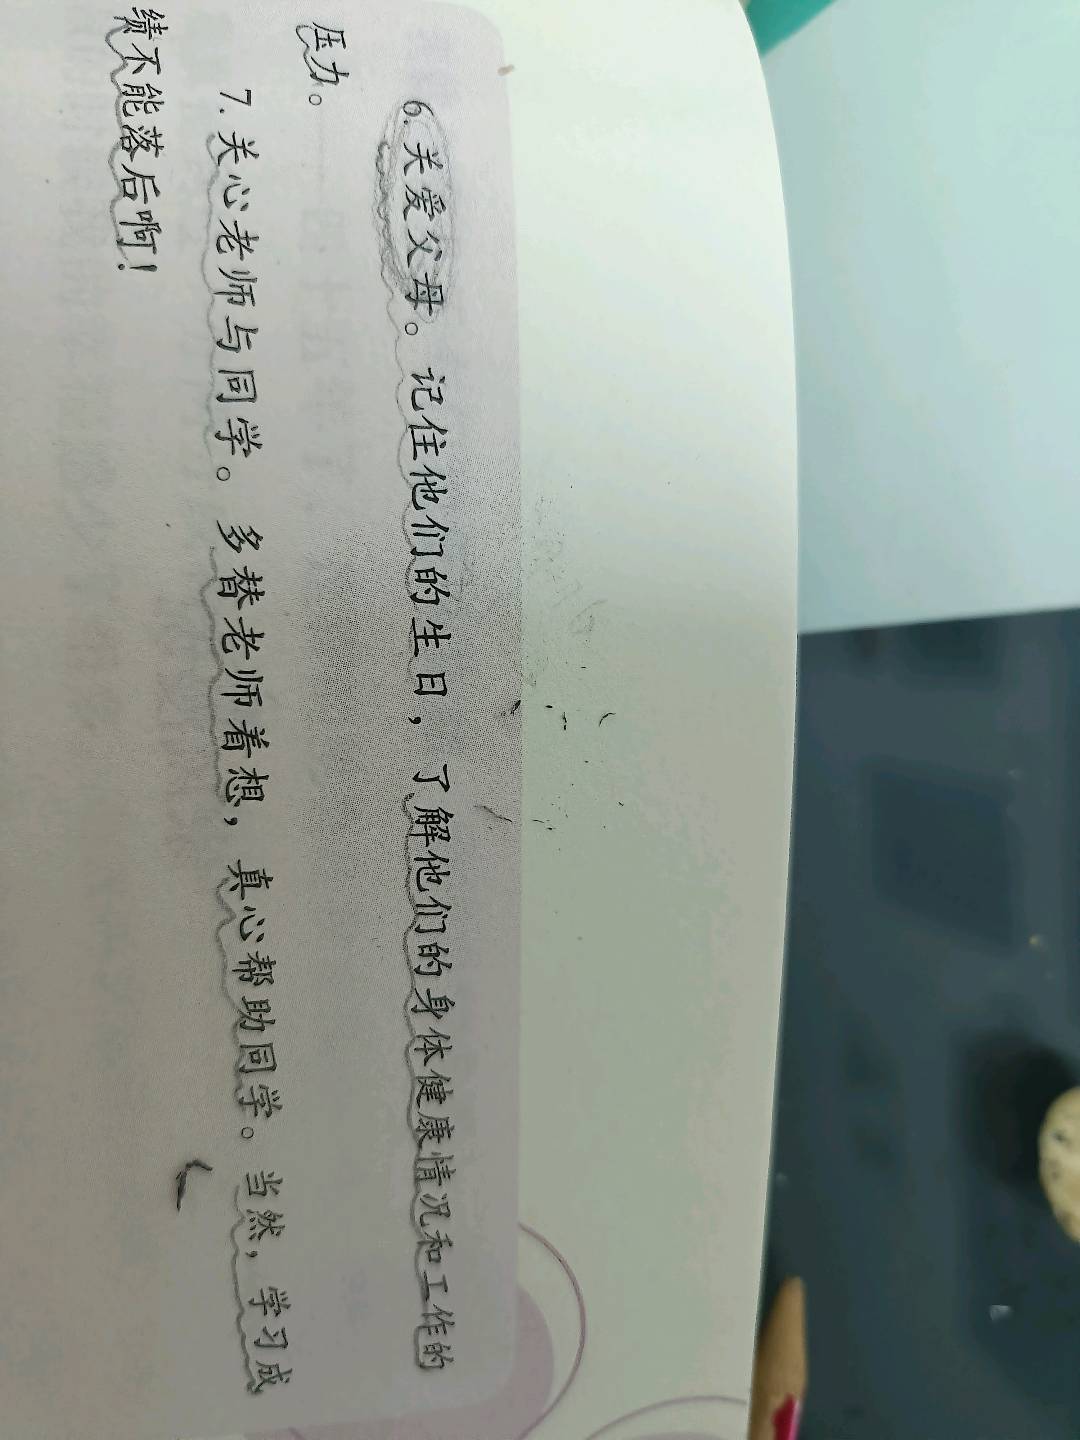 6. 关爱父母。记住他们的生日，了解他们的身体健康情况和工作的
压力。
7. 关心老师与同学。多替老师着想，真心帮助同学。当然，学习成
绩不能落后啊！